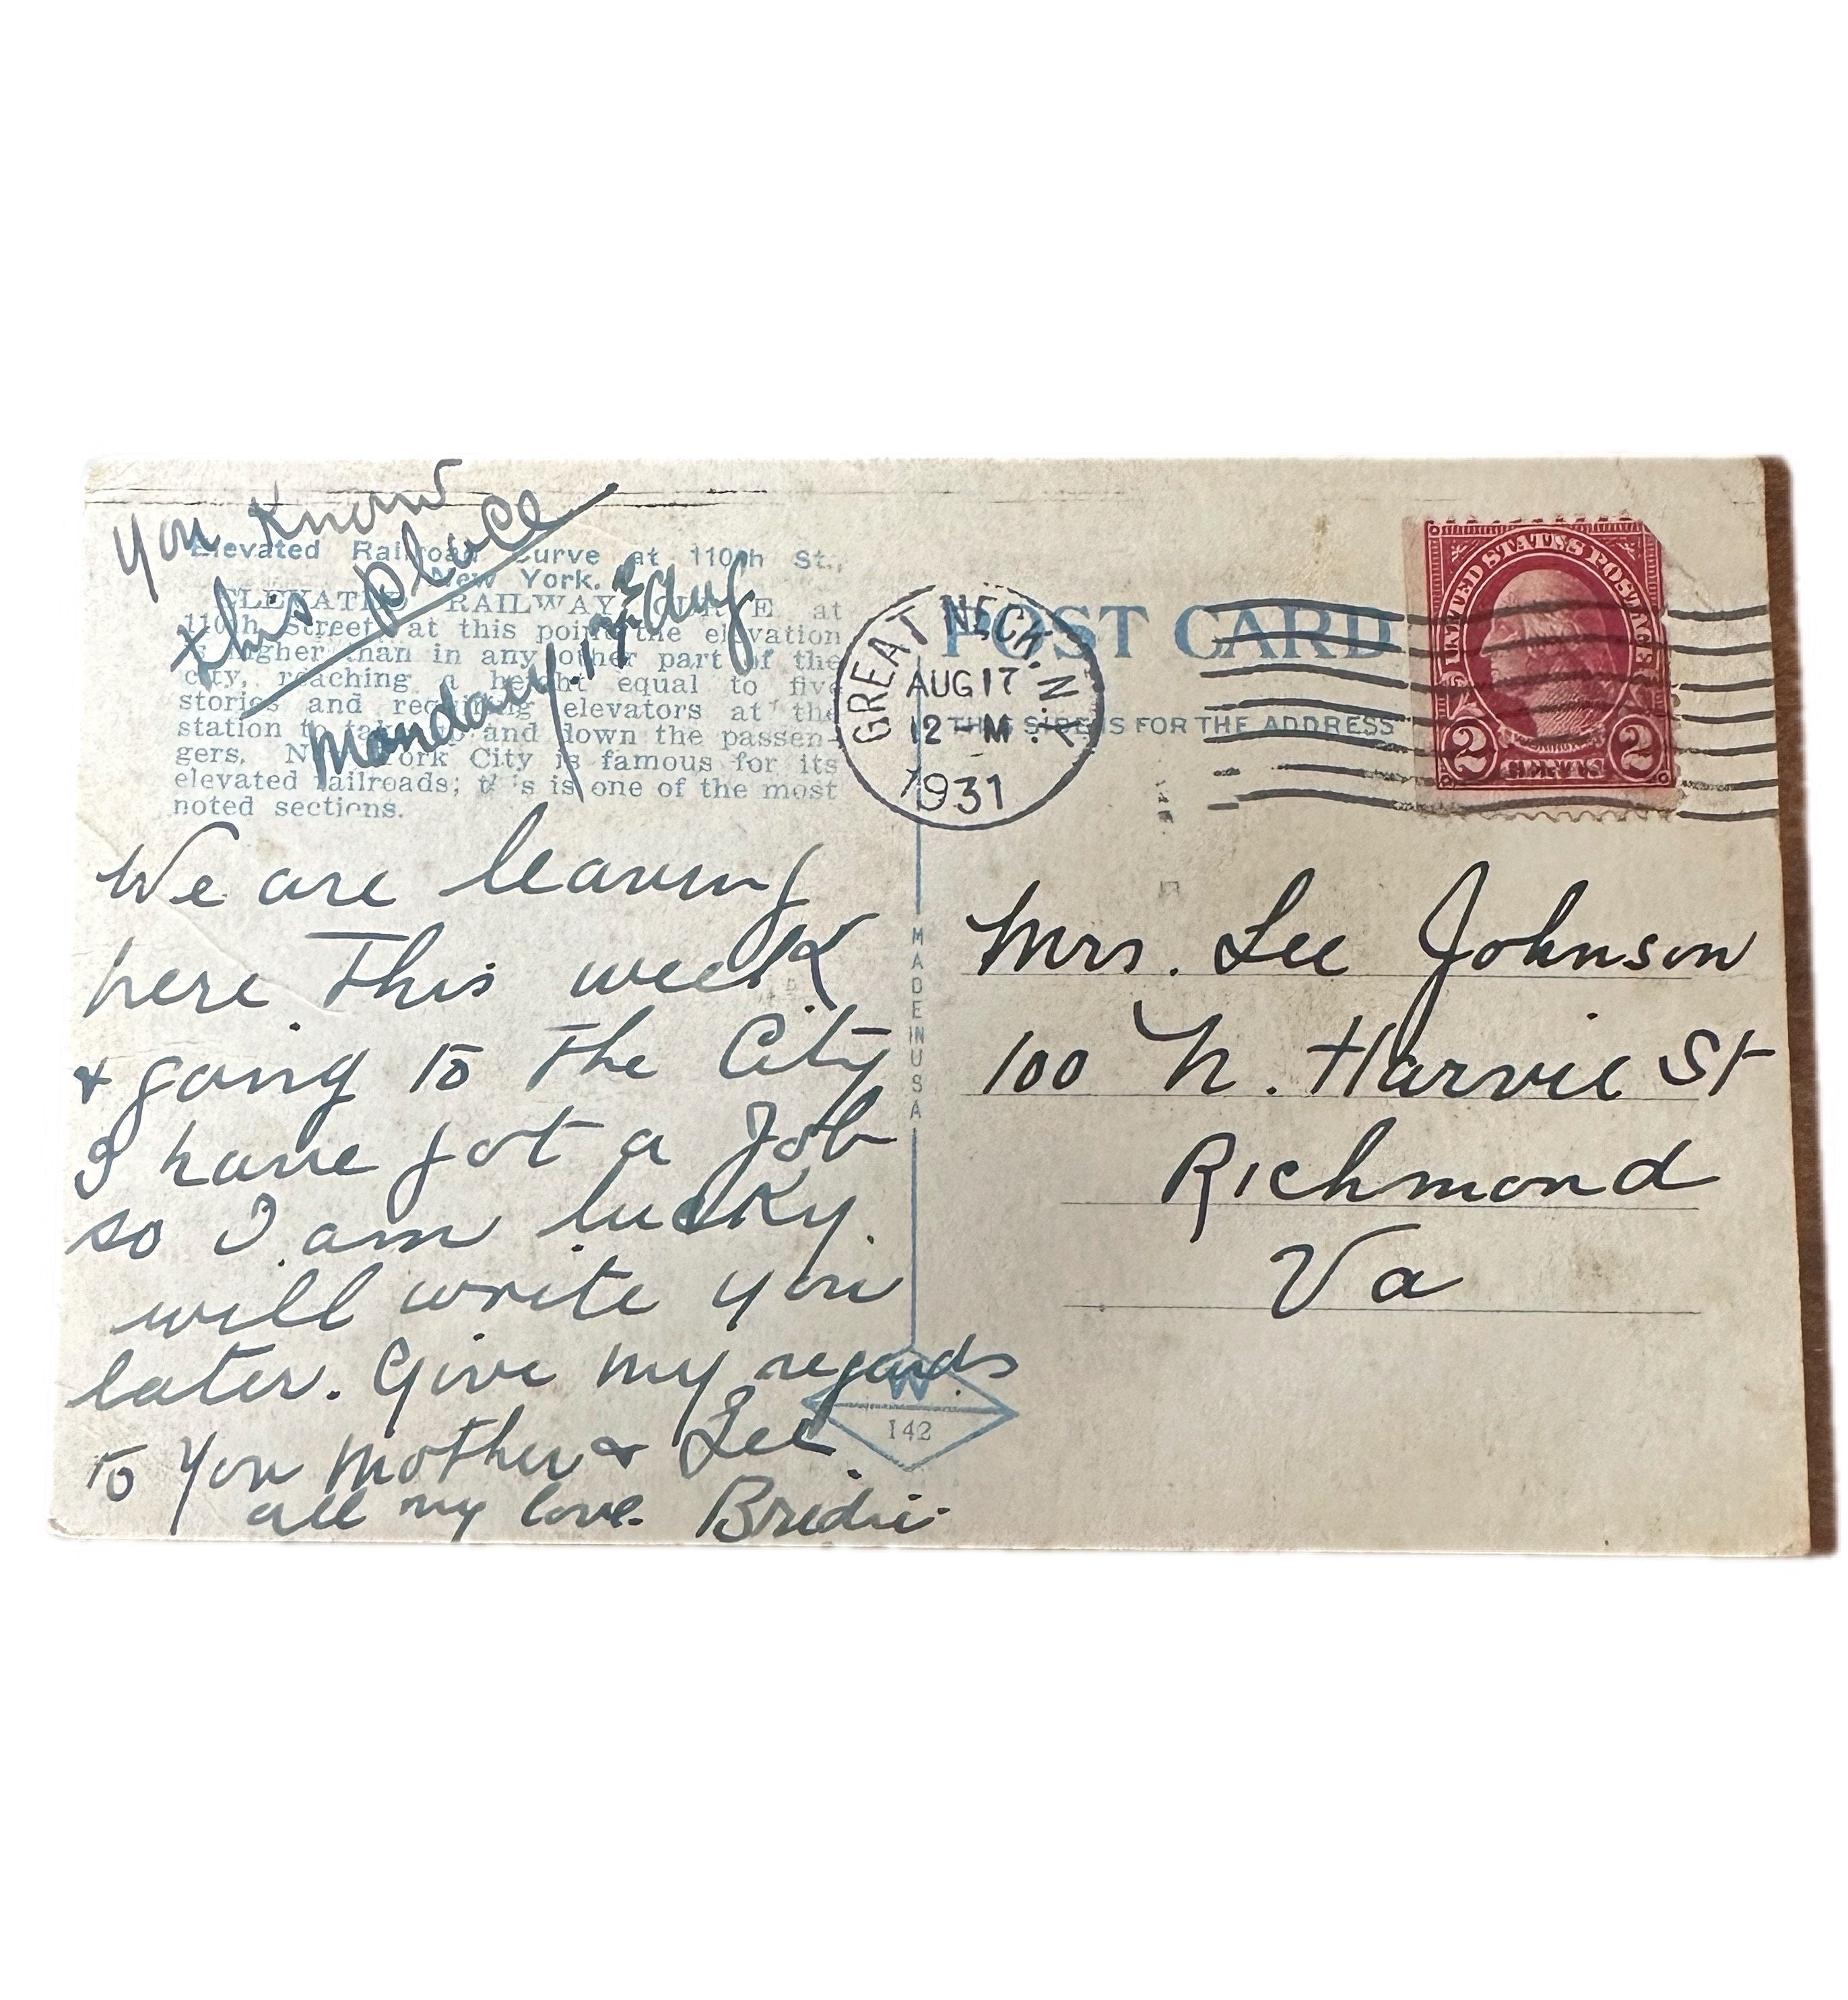 you know
this place
Monday, 17 Aug
Elevated Railroad Curve at 110th St.,
New York.
ELEVATED RAILWAY CURVE at
110th Street, at this point the elevation
is higher than in any other part of the
city, reaching a height equal to five
stories and requiring elevators at the
station to take up and down the passen-
gers. New York City is famous for its
elevated railroads; this is one of the most
noted sections.
We are leaving
here This week
& going to the City
I have got a Job
so I am lucky.
will write you
later. Give my regards
to you Mother & Lee.
all my love.
MADE IN USA
W
142
POST CARD
THIS SIDE IS FOR THE ADDRESS
GREAT NECK, N.Y.
AUG 17
12 - M
1931
UNITED STATES POSTAGE
WASHINGTON
2 CENTS 2
Mrs. Lee Johnson
100 N. Harvie St
Richmond
Va